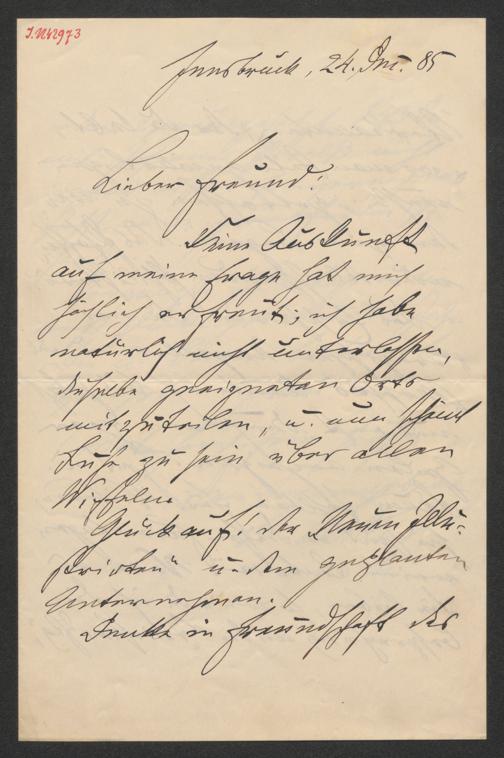 J.N 42973
Innsbruck, 24. Dez. 85
Lieber Freund!
Deine Auskunft
auf meine Frage hat mich
höchlich erfreut; ich habe
natürlich nicht unterlassen,
dieselbe geeigneten Orts
mitzuteilen, u. nun scheint
Ruhe zu sein über allen
Wipfeln.
Glück auf! der „Neuen Illu-
strirten" u. dem geplanten
Unternehmen.
Denke in Freundschaft des